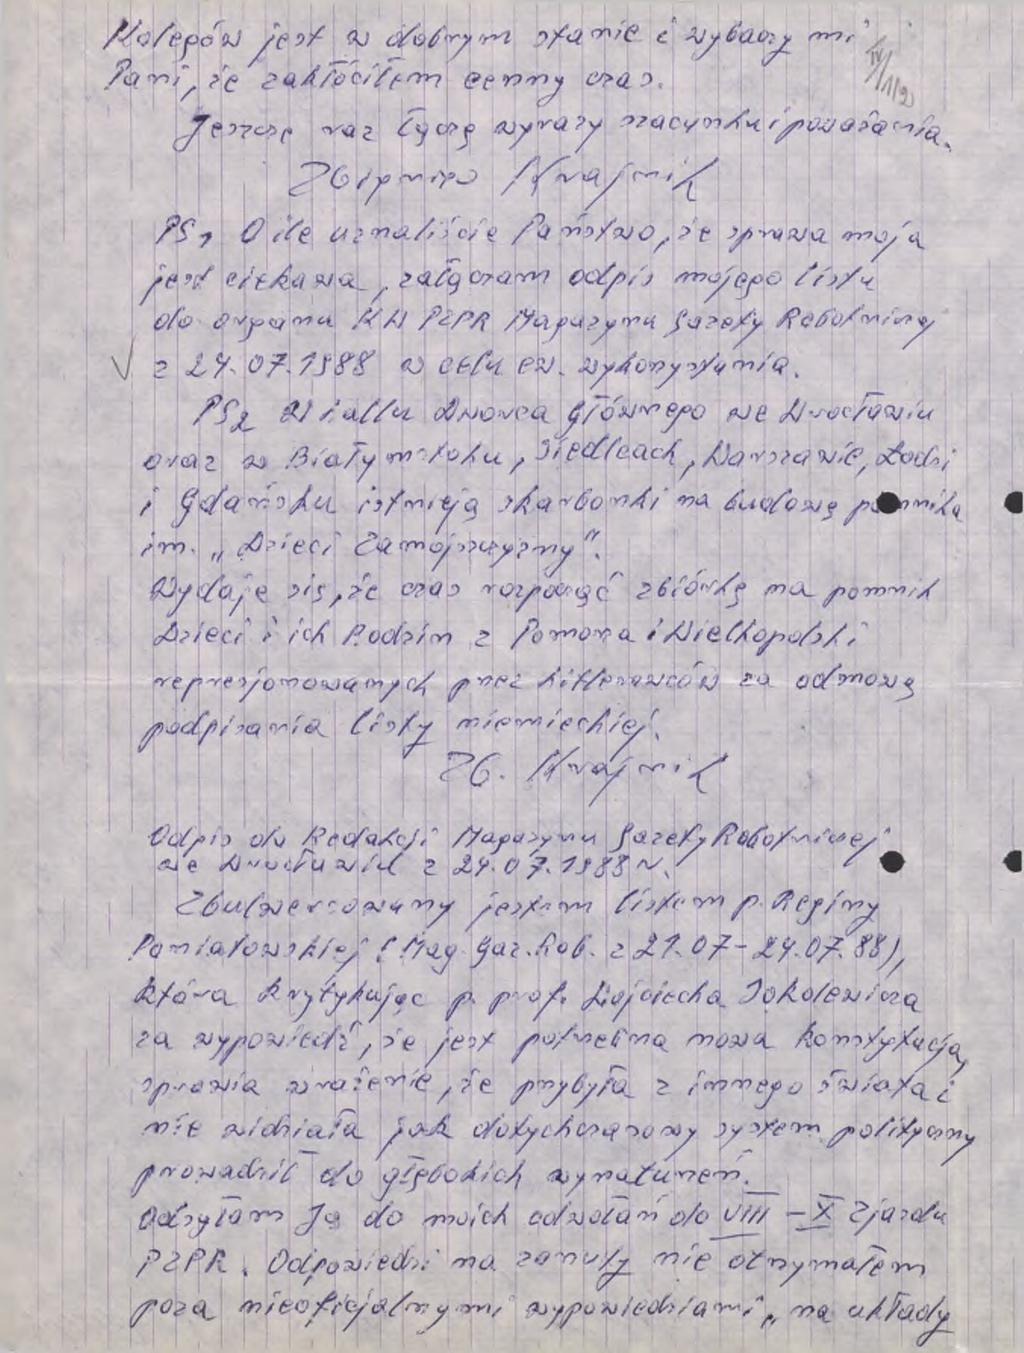 Kolegów jest w dobrym stanie i wybaczy mi
Pani, że zakłóciłem cenny czas.
Jeszcze raz łączę wyrazy szacunku i poważania.
Zbigniew Krajnik
PS1 O ile uznaliście Państwo, że sprawa moja
jest ciekawa, załączam odpis mojego listu
do organu KW PZPR Magazynu Gazety Robotniczej
z 24.07.1988 w celu ew. wykorzystania.
PS2 W hallu Dworca Głównego we Wrocławiu
oraz w Białymstoku, Siedlcach, Warszawie, Łodzi
i Gdańsku istnieją skarbonki na budowę pomnika
im. „Dzieci Zamojszczyzny".
Wydaje się, że czas rozpocząć zbiórkę na pomnik
Dzieci i ich Rodzin z Pomorza i Wielkopolski
represjonowanych przez hitlerowców za odmowę
podpisania listy niemieckiej.
Zb. Krajnik
Odpis do Redakcji Magazynu Gazety Robotniczej
we Wrocławiu z 24.07.1988 r.
Zbulwersowany jestem listem p. Reginy
Poniatowskiej (Mag. Gaz. Rob. z 21.07-24.07.88),
która krytykując p. prof. Wojciecha Sokolewicza
za wypowiedź, że jest potrzebna nowa Konstytucja,
sprawia wrażenie, że przybyła z innego świata i
nie widziała jak dotychczasowy system polityczny
prowadził do głębokich wynaturzeń.
Odsyłam Ją do moich odwołań do VIII – X Zjazdu
PZPR. Odpowiedzi na zarzuty nie otrzymałem
poza nieoficjalnymi wypowiedziami, „na układy